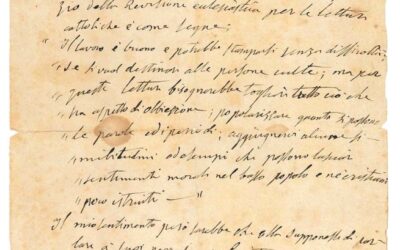 della Revisione eclesiastica per le Letture
cattoliche è come segue;
"Il lavoro è buono e potrebbe stamparsi senza difficoltà;
"se si vuol destinare alle persone culte; ma per
"queste letture bisognerebbe togliere tutto ciò che
"ha aspetto di obbiezione; popolarizzare quanto si possono
"le parole ed i periodi; aggiugnervi alcune si-
"militudini od esempi che possono lasciar
"sentimenti morali nel basso popolo e ne' cristiani
"poco istruiti —"
Il mio sentimento però sarebbe che ella